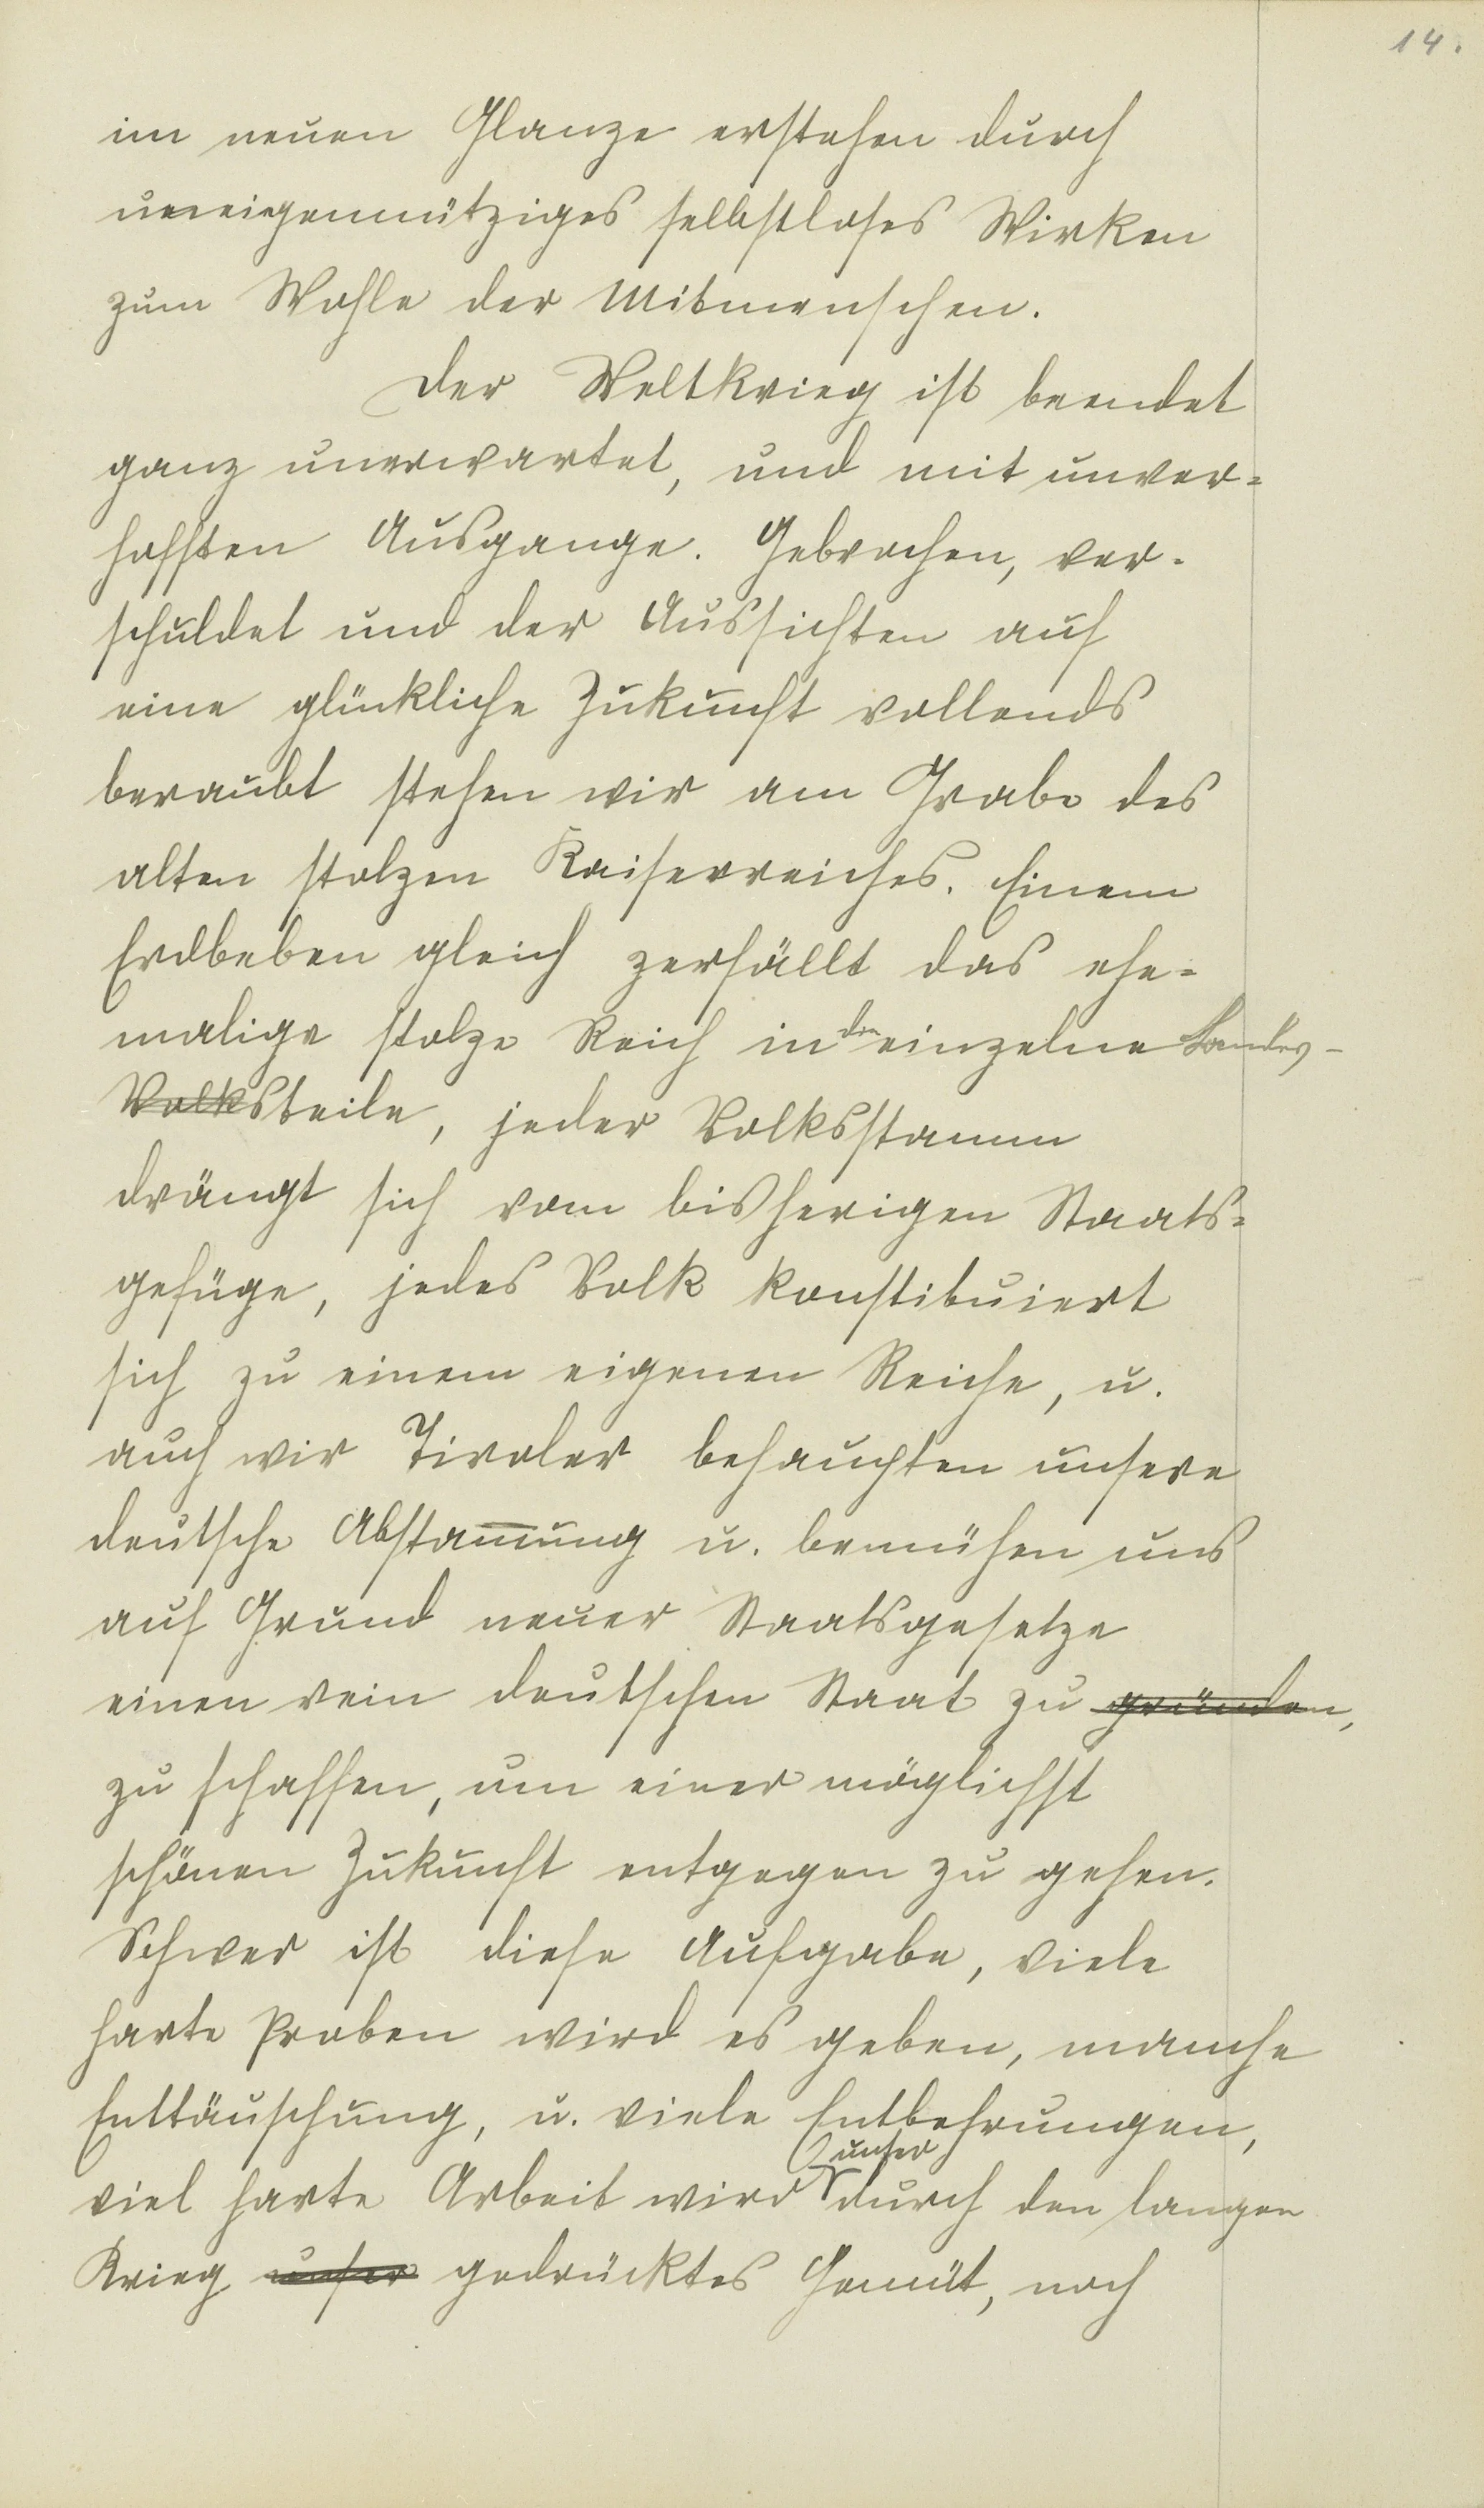 14.
im neuen Glanze erstehen durch
uneigennütziges selbstloses Wirken
zum Wohle der Mitmenschen.
Der Weltkrieg ist beendet
ganz unerwartet, und mit unver=
hofften Ausgange. Gebrochen, ver-
schuldet und der Aussichten auf
eine glückliche Zukunft vollends
beraubt stehen wir am Grabe des
alten stolzen Kaiserreiches. Einem
Erdbeben gleich zerfällt das ehe=
malige stolze Reich in den einzelne Landes-
Volksteile, jeder Volksstamm
drängt sich vom bisherigen Staats=
gefüge, jedes Volk konstituiert
sich zu einem eigenen Reiche, u.
auch wir Tiroler behaupten unsere
deutsche Abstam̅ung u. bemühen uns
auf Grund neuer Staatsgesetze
einen rein deutschen Staat zu gründen,
zu schaffen, um einer möglichst
schönen Zukunft entgegen zu gehen.
Schwer ist diese Aufgabe, viele
harte Proben wird es geben, manche
Enttäuschung, u. viele Entbehrungen,
viel harte Arbeit wird unser durch den langen
Krieg unser gedrücktes Gemüt, noch